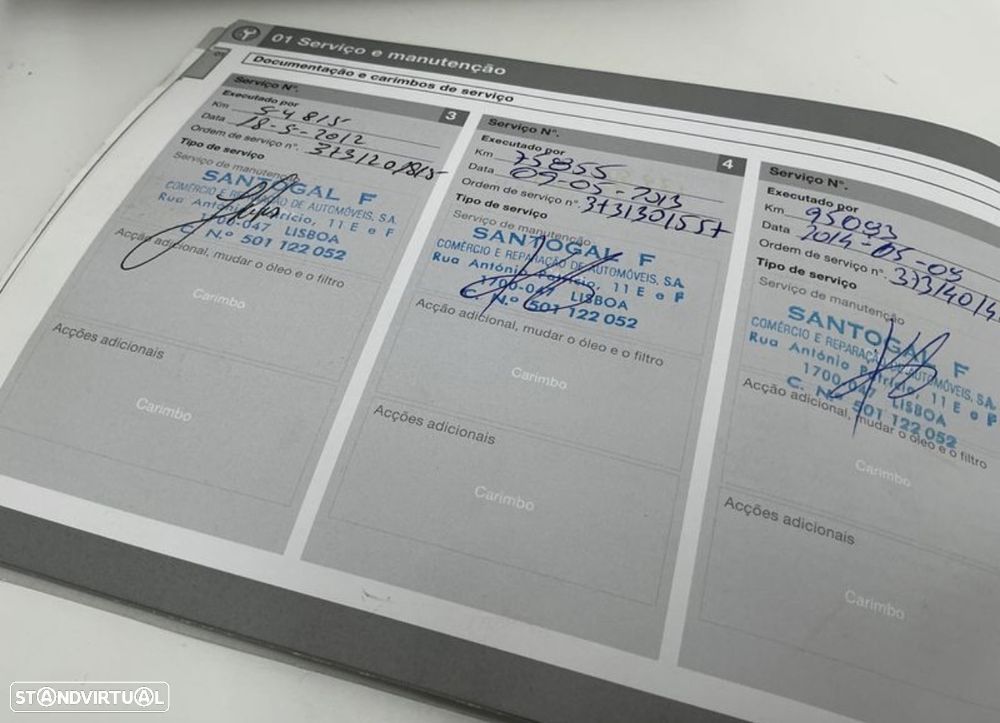 01 Serviço e manutenção
Documentação e carimbos de serviço
Serviço Nº.
3
Executado por
Km 54815
Data 18-5-2012
Ordem de serviço nº.
Tipo de serviço
Serviço de manutenção
SANTOGAL F
COMÉRCIO E REPARAÇÃO DE AUTOMÓVEIS, S.A.
Rua António Patrício, 11 E e F
1700-047 LISBOA
C. N.º 501 122 052
Acção adicional, mudar o óleo e o filtro
Carimbo
Acções adicionais
Carimbo
Serviço Nº.
4
Executado por
Km 75855
Data 09-05-2013
Ordem de serviço nº. 373130155+
Tipo de serviço
Serviço de manutenção
SANTOGAL F
COMÉRCIO E REPARAÇÃO DE AUTOMÓVEIS, SA.
Rua António Patrício, 11 E e F
1700-047 LISBOA
C. N.º 501 122 052
Acção adicional, mudar o óleo e o filtro
Carimbo
Acções adicionais
Carimbo
Serviço Nº.
Executado por
Km 95093
Data 2014-05-09
Ordem de serviço nº.
Tipo de serviço
Serviço de manutenção
SANTOGAL F
COMÉRCIO E REPARAÇÃO DE AUTOMÓVEIS, SA.
Rua António Patrício, 11 E e F
1700-047 LISBOA
C. N.º 501 122 052
Acção adicional, mudar o óleo e o filtro
Carimbo
Acções adicionais
Carimbo
STANDVIRTUAL